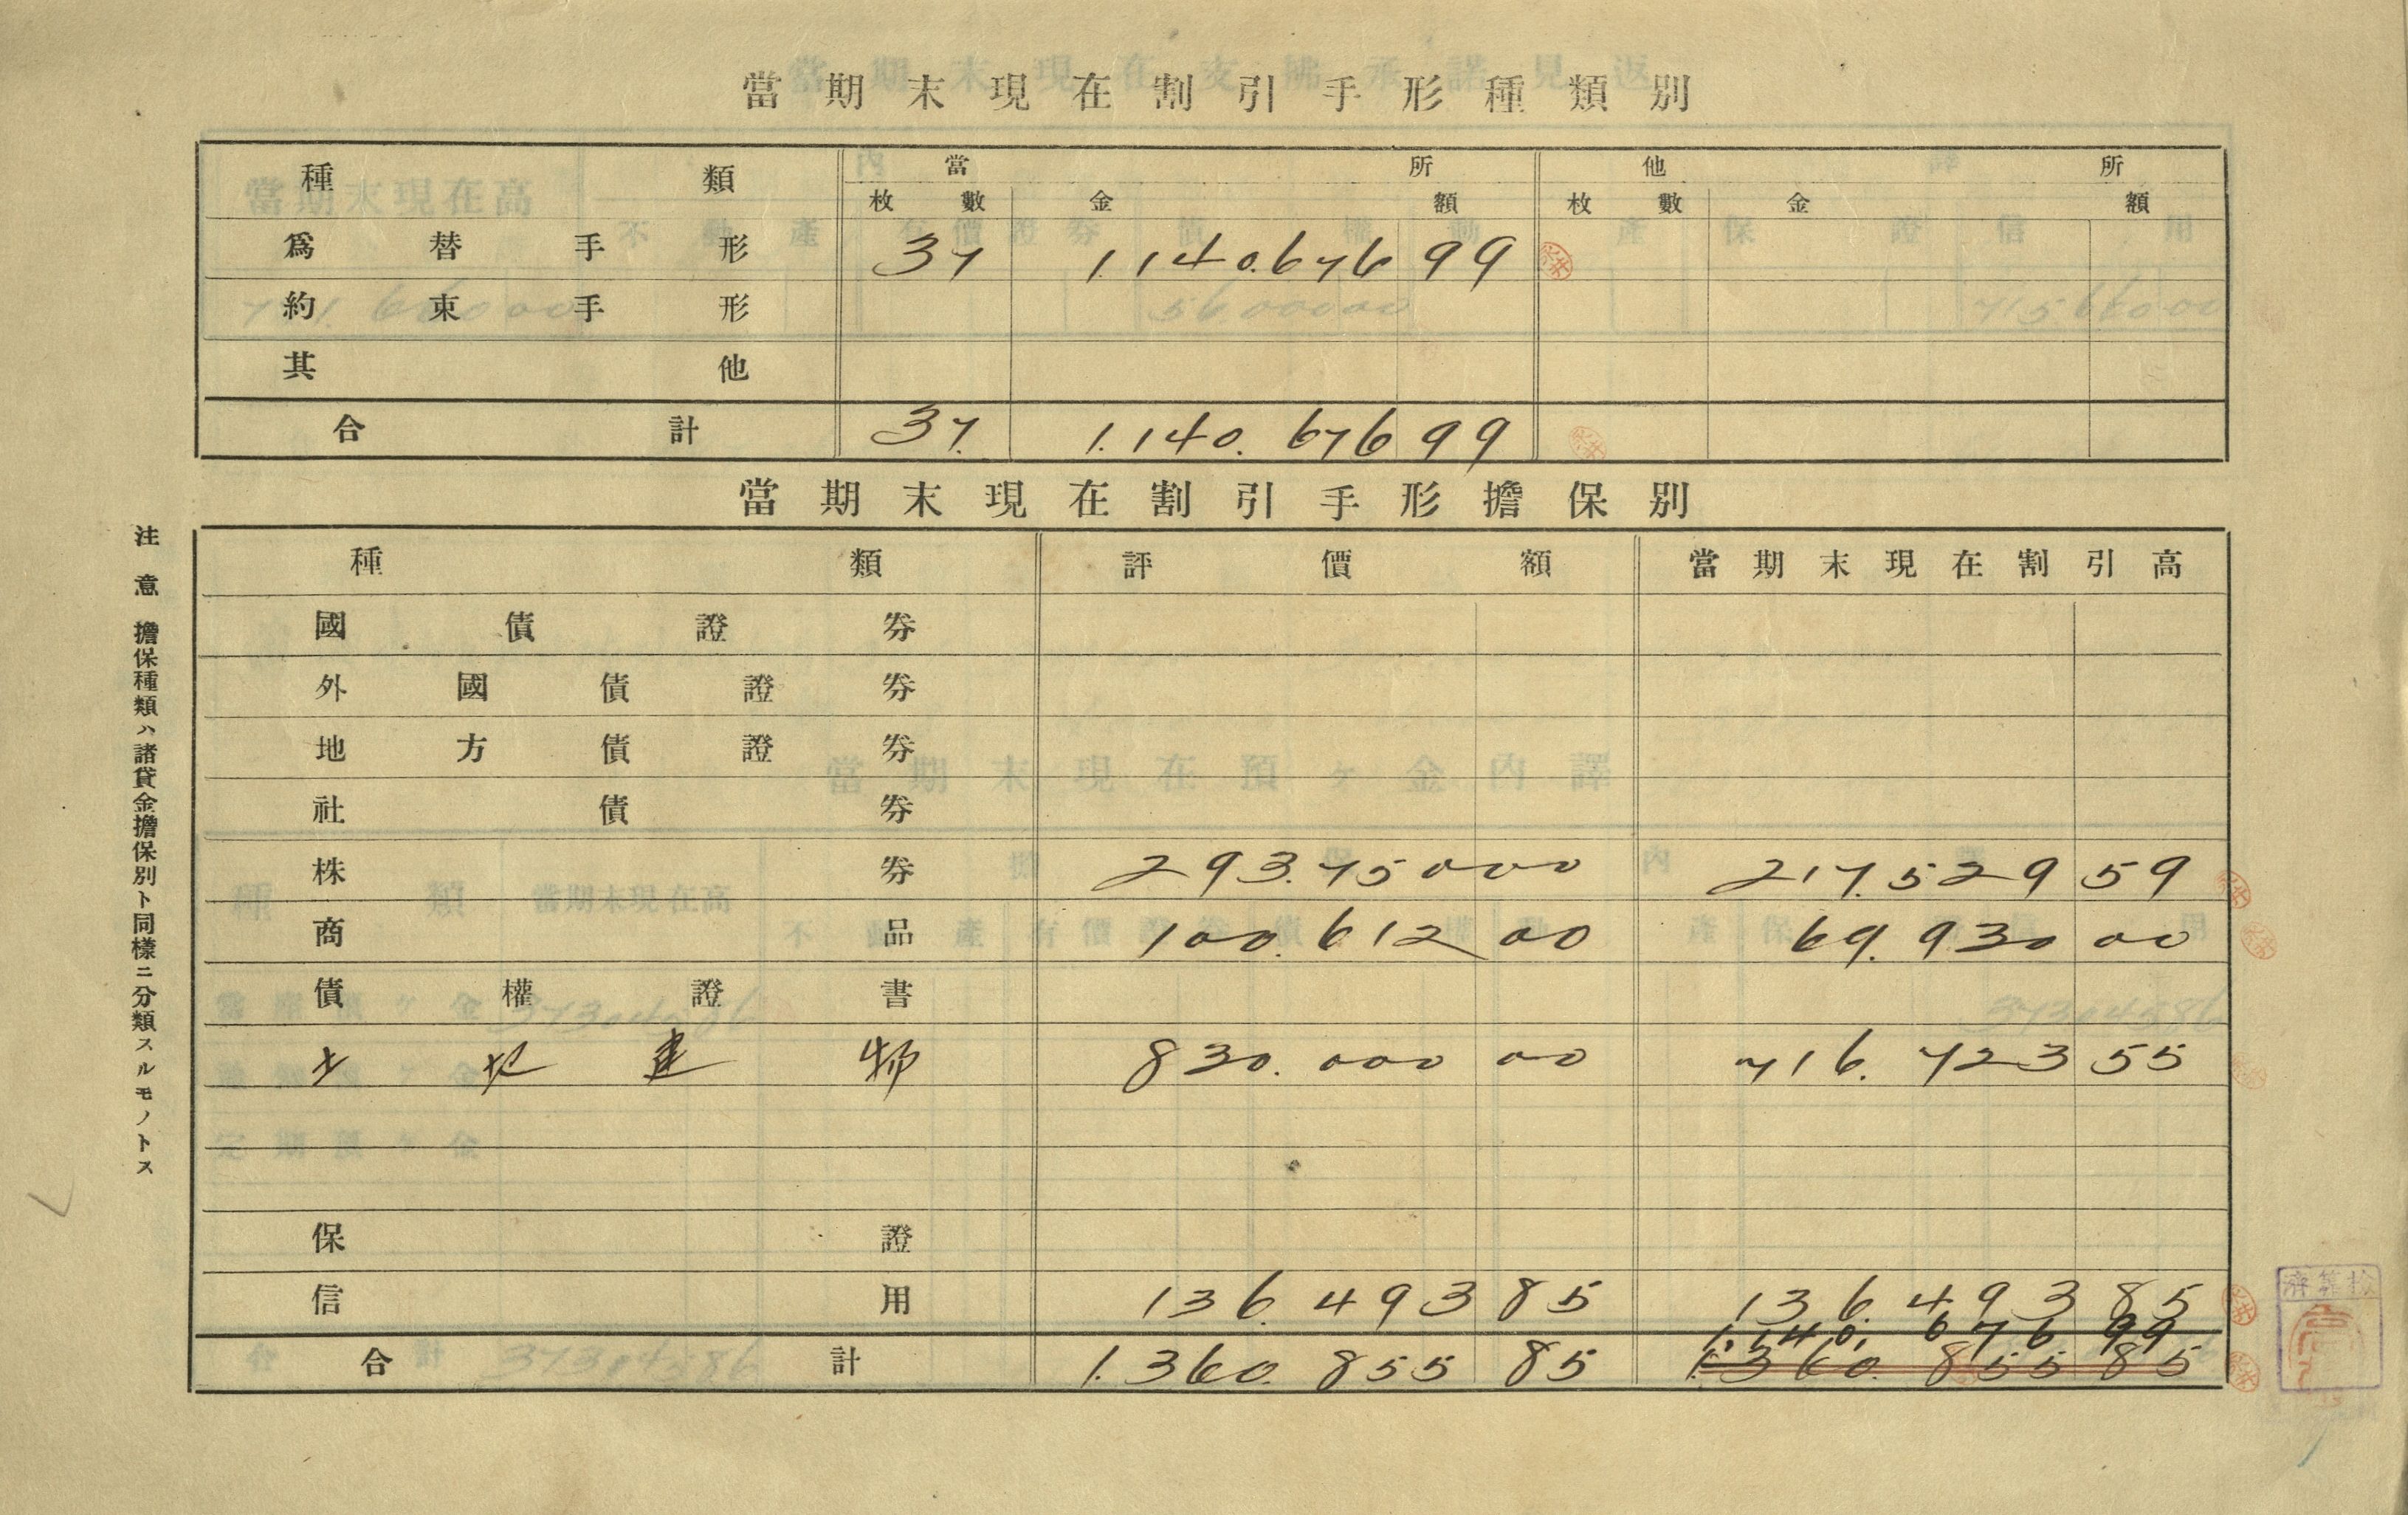 當期末現在割引手形種類別
種類 當所 他所
枚數 金額 枚數 金額
爲替手形 37 1.140.676 99
約束手形
其他
合計 37. 1.140.676 99
當期末現在割引手形擔保別
種類 評價額 當期末現在割引高
國債證券
外國債證券
地方債證券
社債券
株券 293.750 00 217.529 59
商品 100.612 00 69.930 00
債權證書
土地建物 830.000 00 716.723 55
保證
信用 136.493 85 136.493 85
1.140.676 99
合計 1.360.855 85 1.360.855 85
注意 擔保種類ハ諸貸金擔保別ト同樣ニ分類スルモノトス